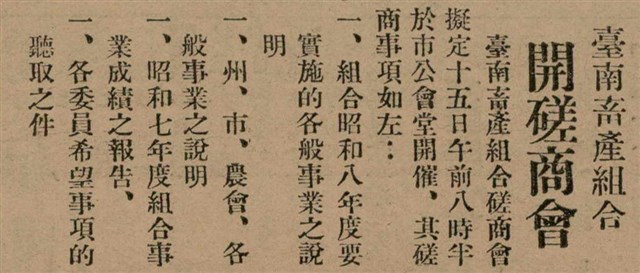 臺南畜產組合
開磋商會
臺南畜產組合磋商會
擬定十五日午前八時半
於市公會堂開催、其磋
商事項如左：
一、組合昭和八年度要
實施的各般事業之說
明
一、州、市、農會、各
般事業之說明
一、昭和七年度組合事
業成績之報告、
一、各委員希望事項的
聽取之件